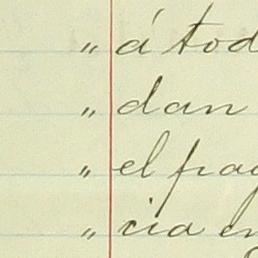 „ á tod
„ dan
„ el frag
„ cia en